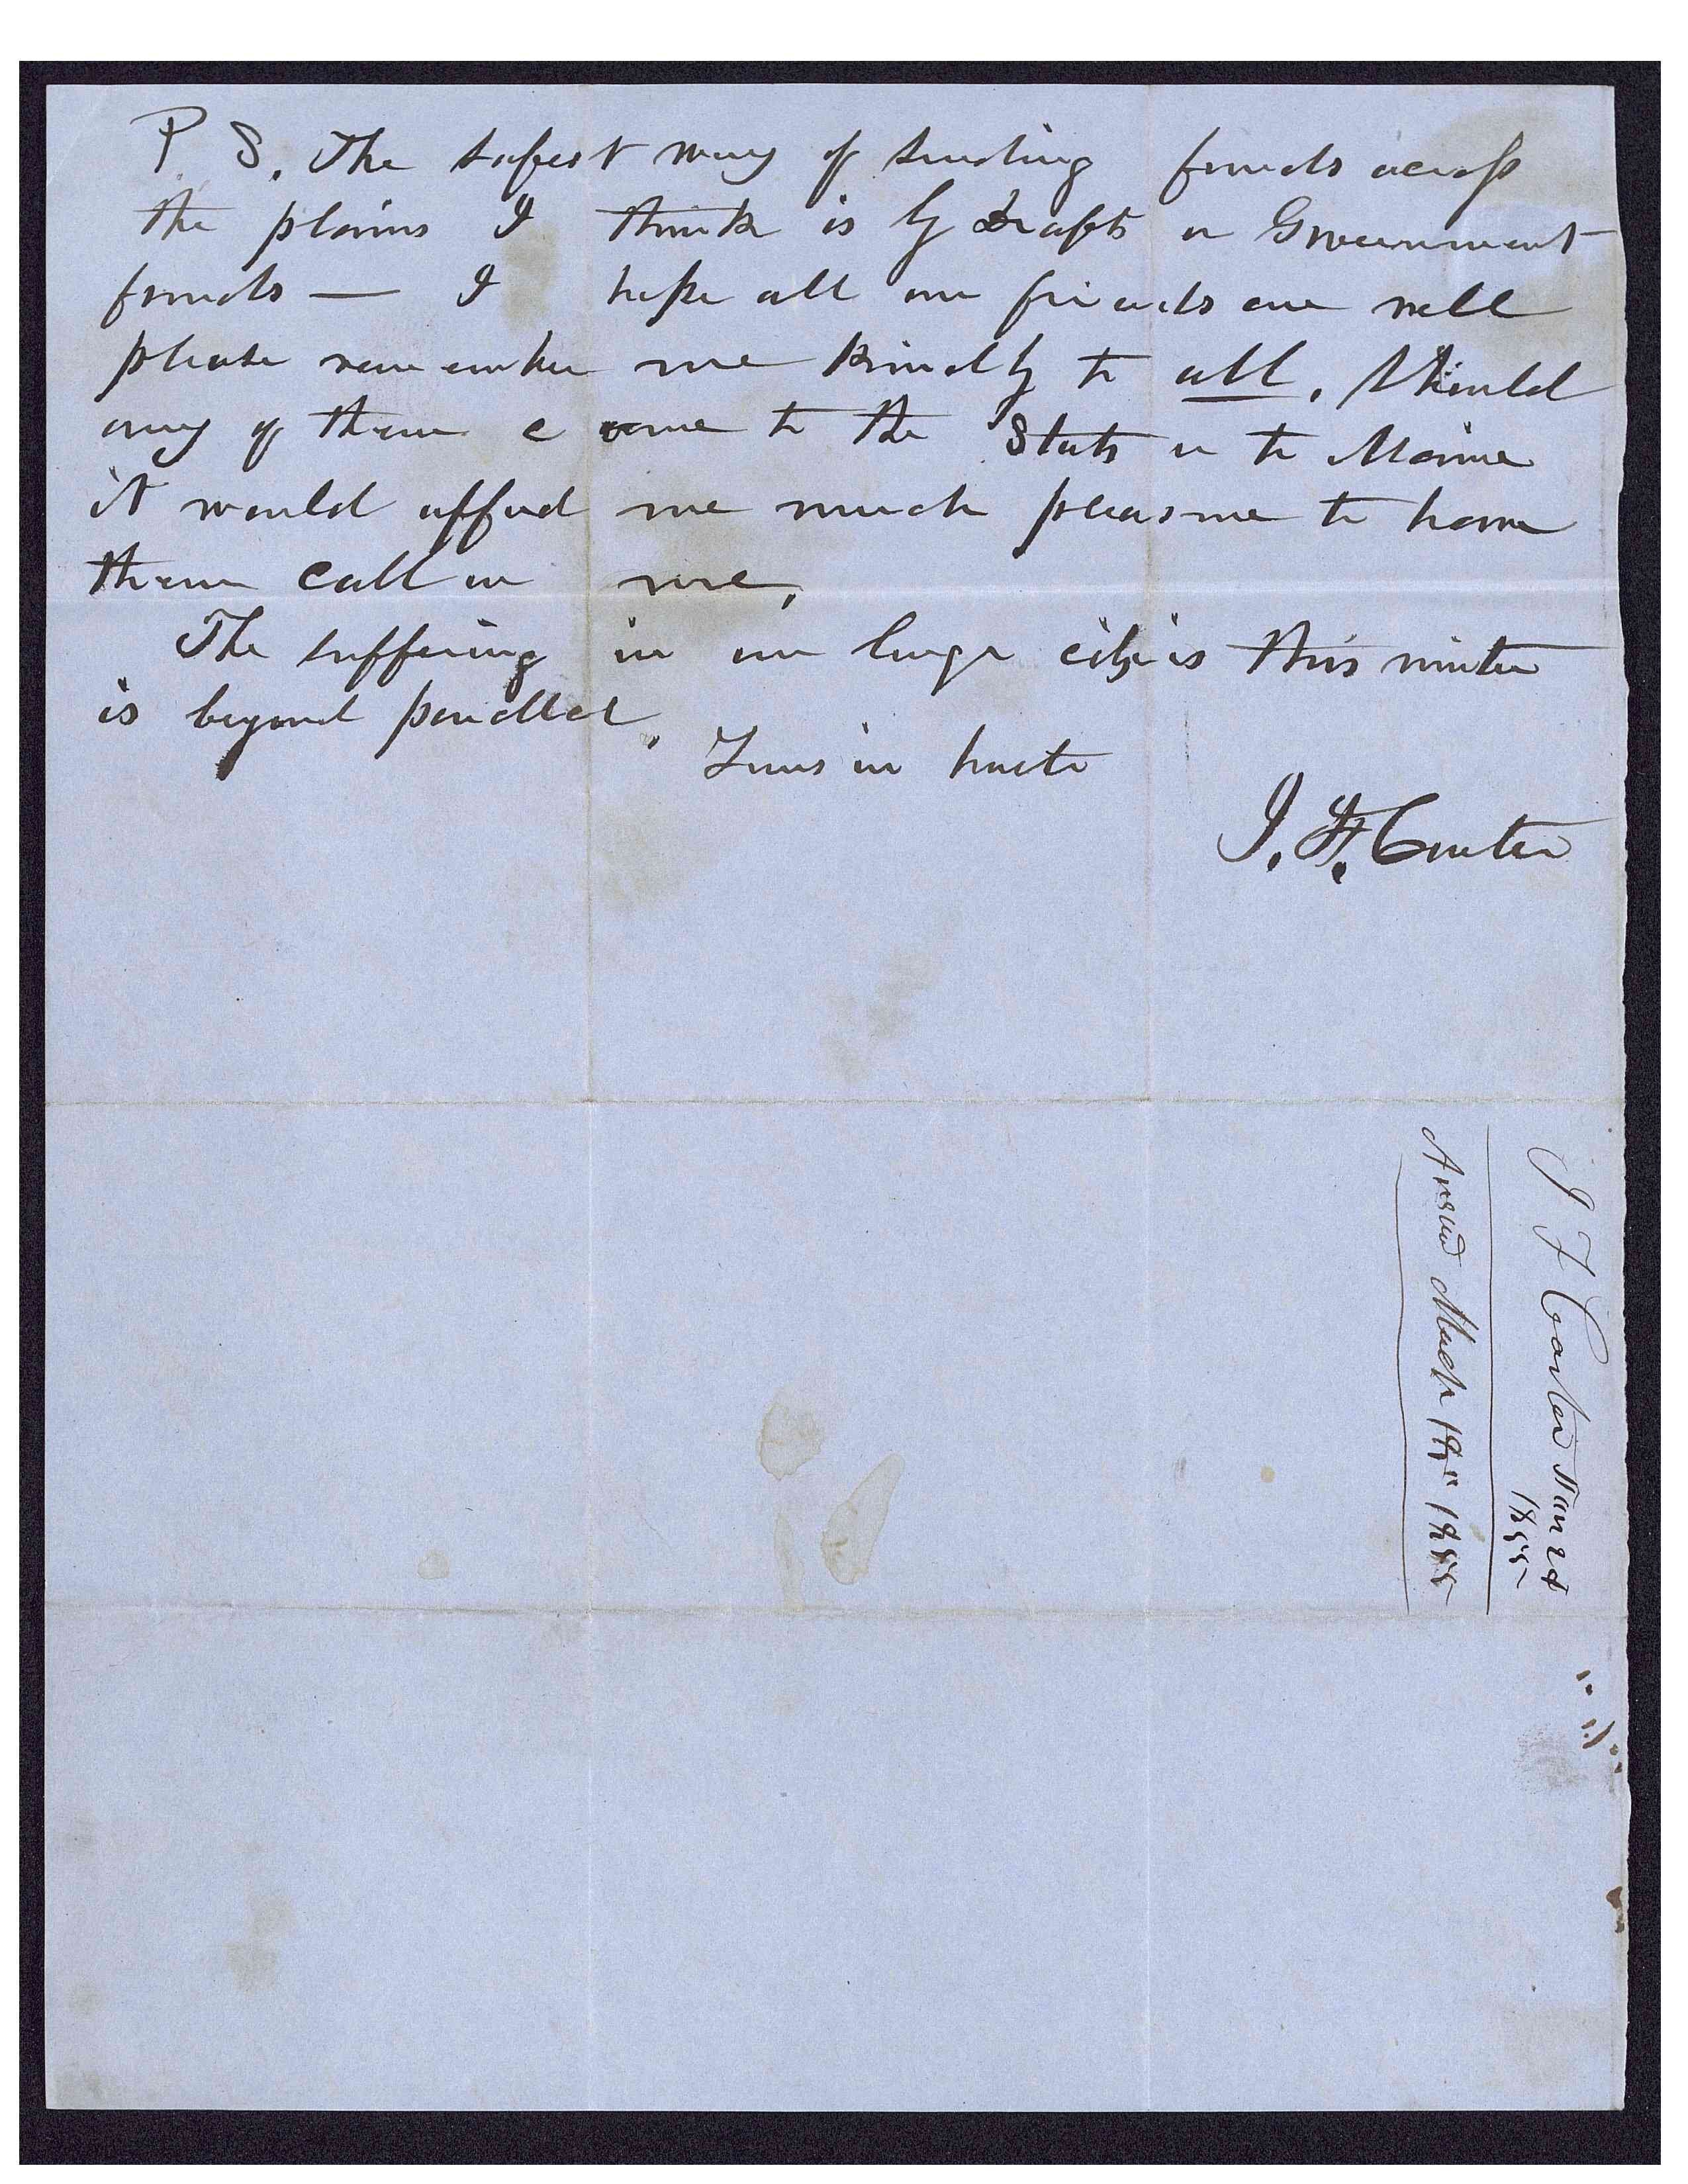 P. S. The safest way of sending funds across
the plains I think is by drafts or Government
funds — I hope all our friends are well
please remember me kindly to all. Should
any of them c come to the States or to Maine
it would afford me much pleasure to have
them call on me,
The suffering in our large cities this winter
is beyond parallel.
Yours in haste
J. F. Carter
J F Carter Jan 24
1855
Answd March 19" 1855